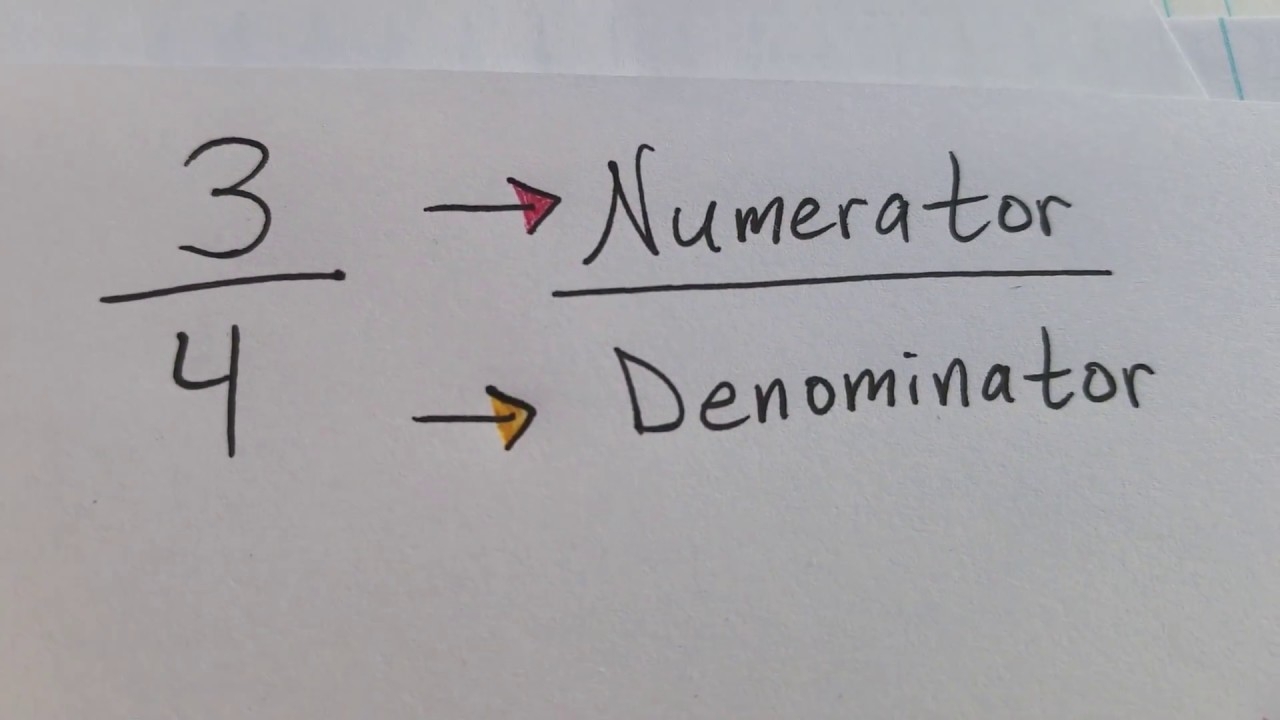 3 → Numerator
4 → Denominator